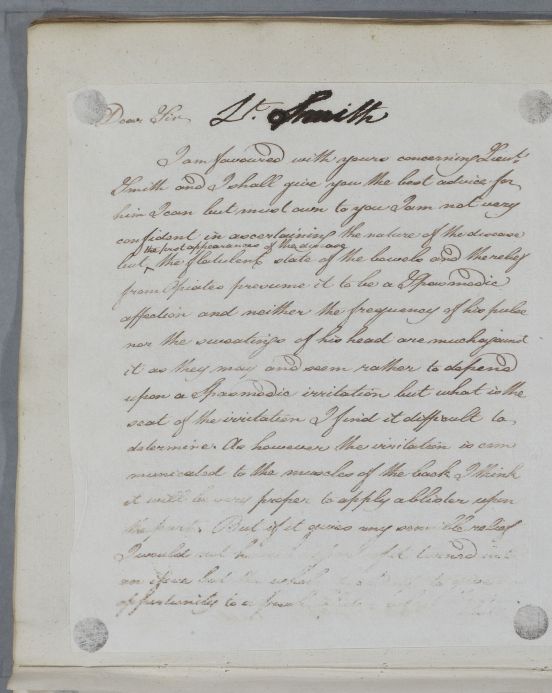 Dear Sir Lt. Smith
I am favoured with yours concerning Lieut.
Smith and I shall give you the best advice for
him I can but must own to you I am not very
confident in ascertaining the nature of the disease
the first appearances of the disease
but, the flatulent state of the bowels and the relief
from Opiates presume it to be a Spasmodic
affection and neither the frequency of his pulse
nor the sweatings of his head are much against
it as they may and seem rather to depend
upon a Spasmodic irritation but what is the
seat of the irritation I find it difficult to
determine. As however the irritation is com
municated to the muscles of the back I think
it will be very proper to apply a blister upon
the part. But if it gives any sensible relief
I would not turned into
an issue but
opportunity to a fresh